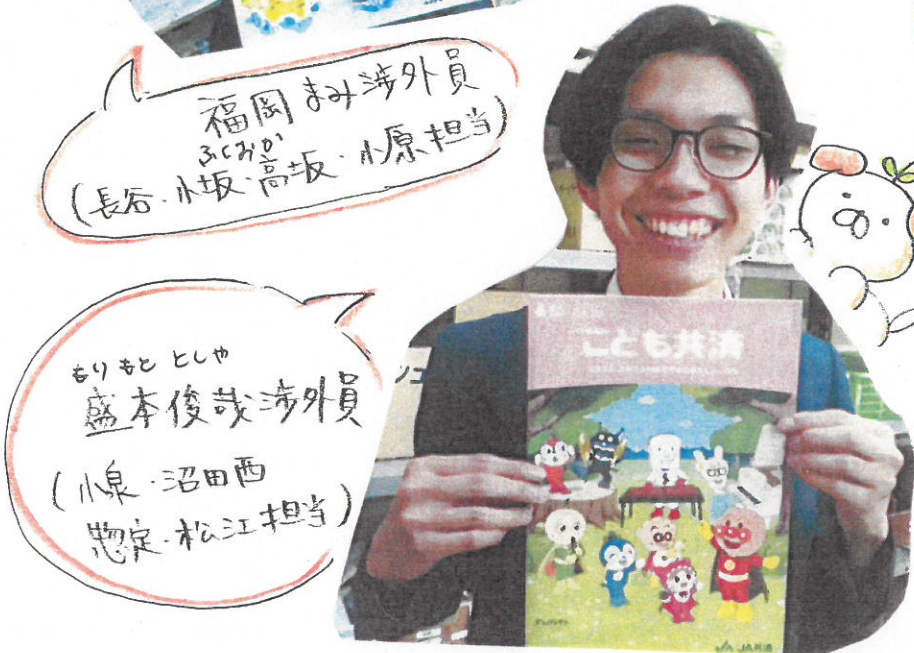 福岡まみ渉外員
ふくおか
(長谷・小坂・高坂・小原担当)
もりもと としや
盛本俊哉渉外員
(小泉・沼田西
惣定・松江担当)
こども共済